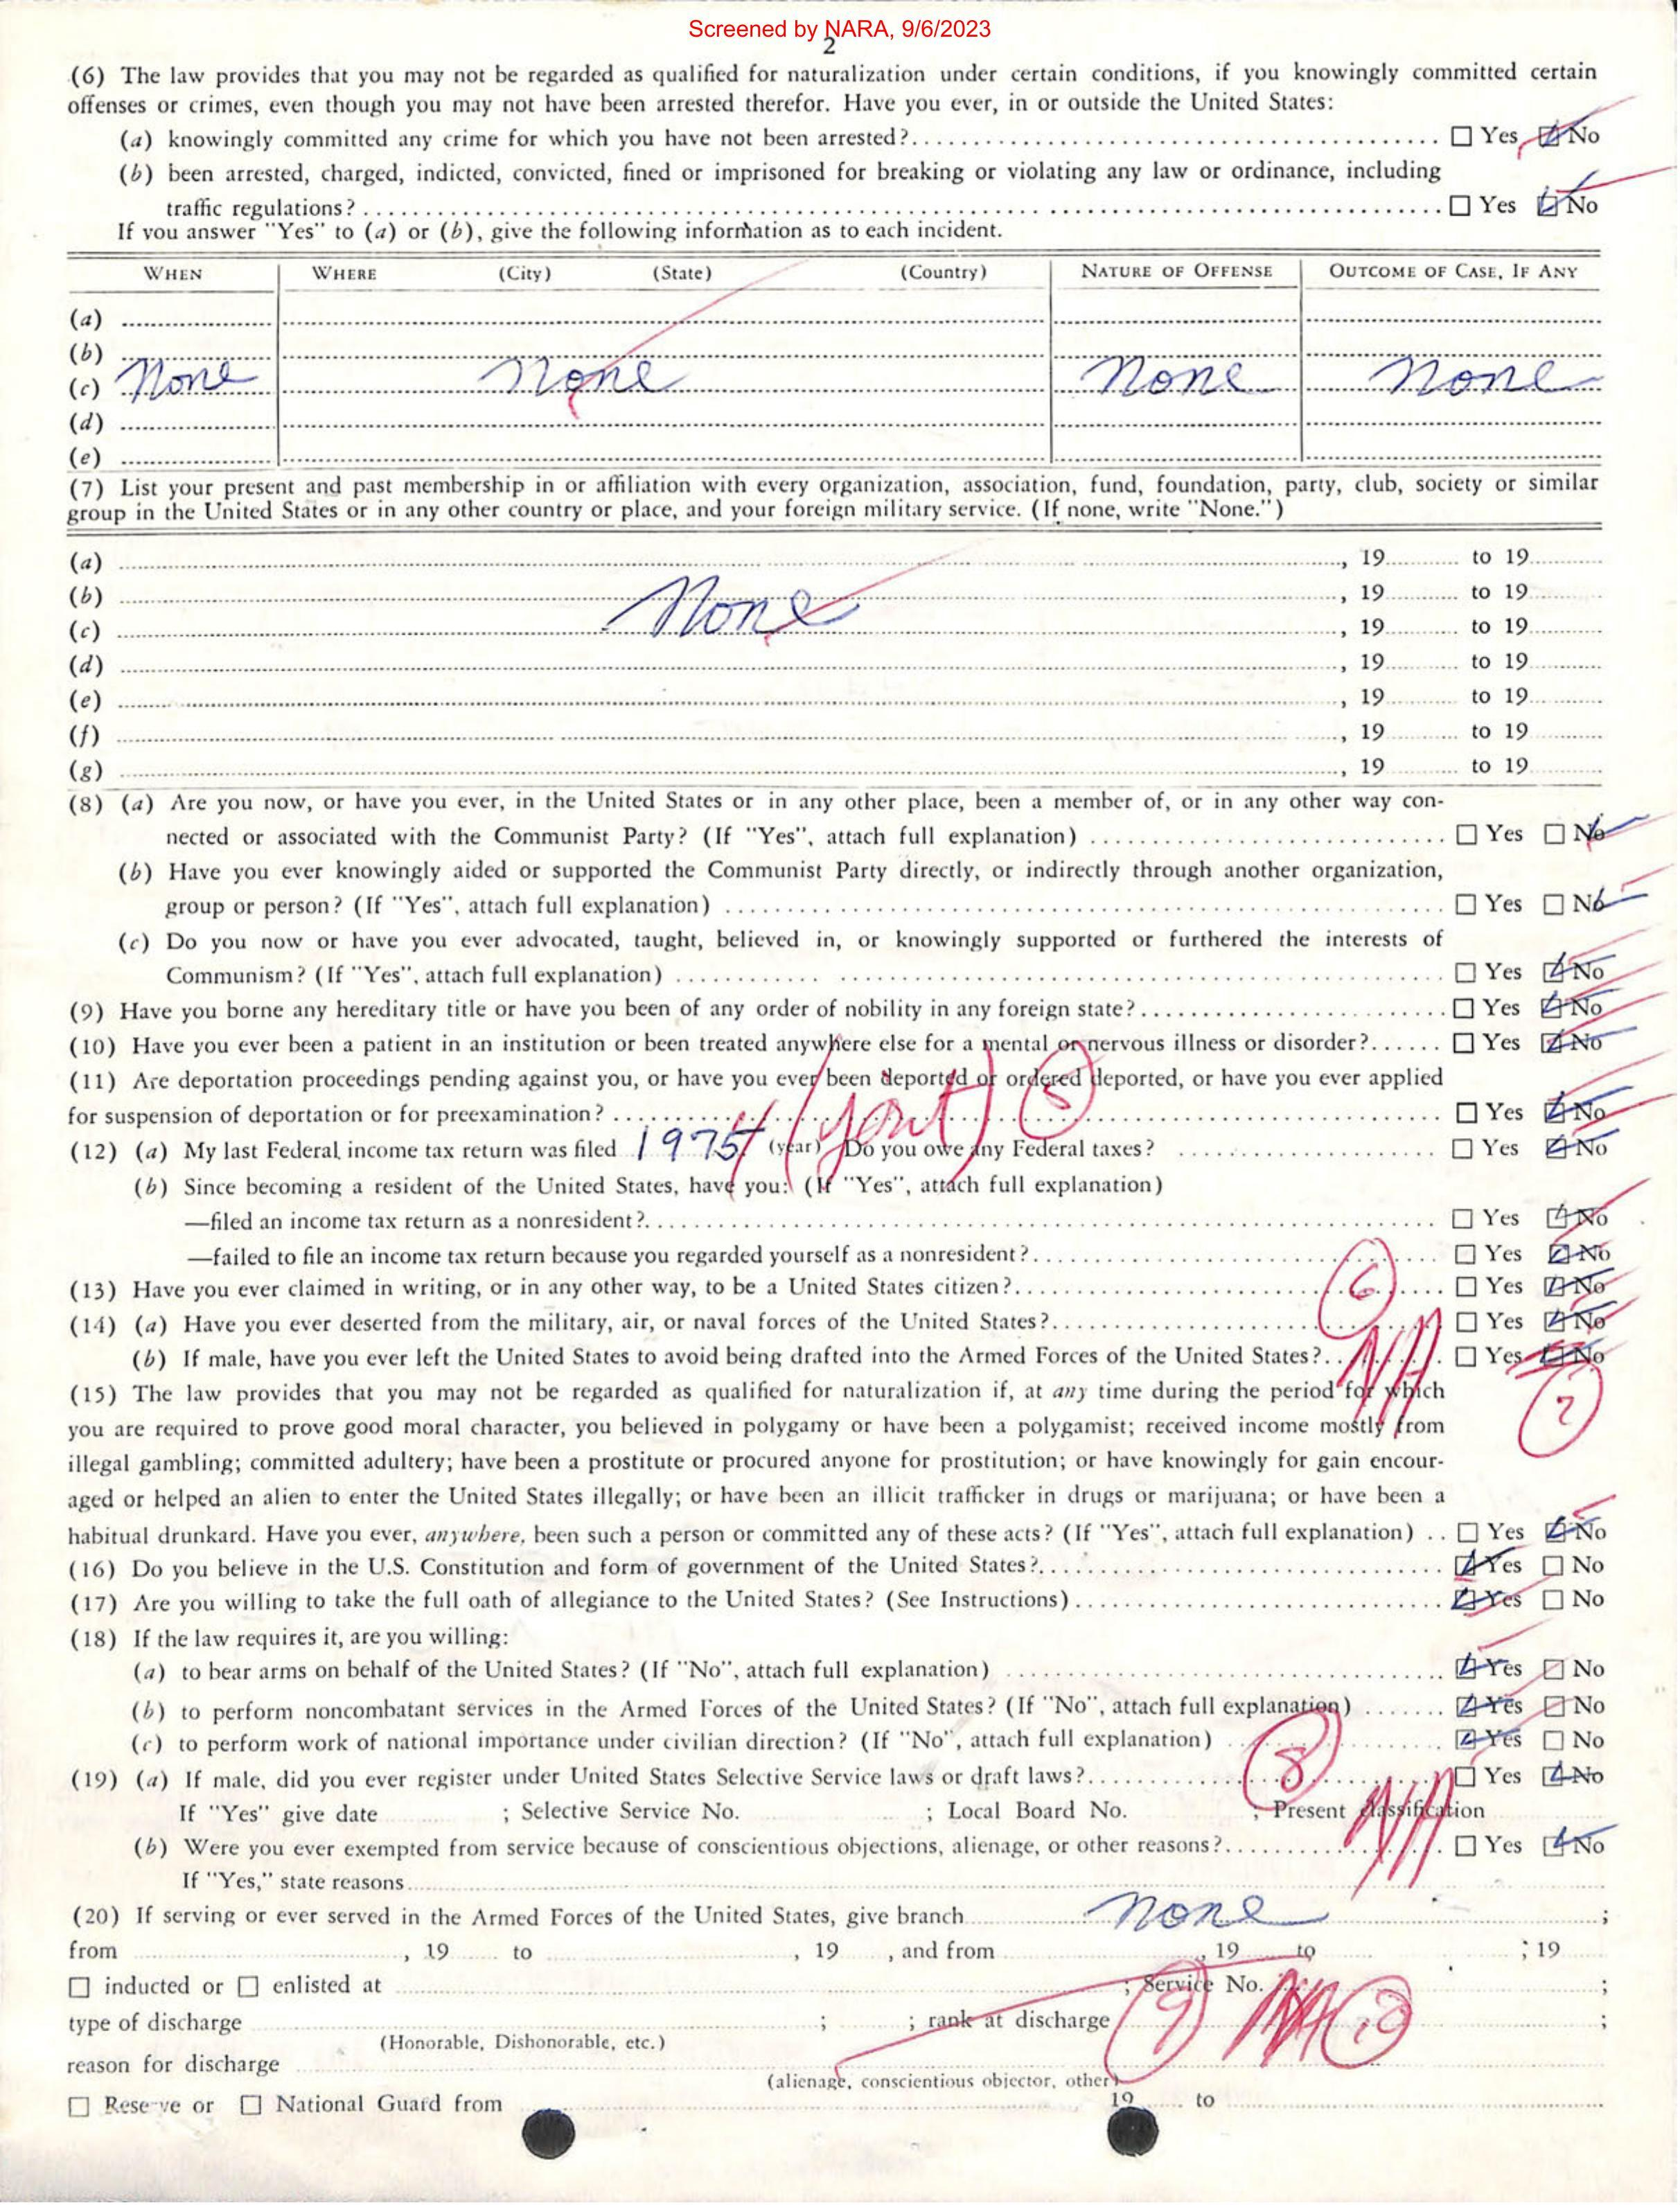 Screened by NARA, 9/6/2023
2
(6) The law provides that you may not be regarded as qualified for naturalization under certain conditions, if you knowingly committed certain
offenses or crimes, even though you may not have been arrested therefor. Have you ever, in or outside the United States:
(a) knowingly committed any crime for which you have not been arrested? ☐ Yes ☑ No
(b) been arrested, charged, indicted, convicted, fined or imprisoned for breaking or violating any law or ordinance, including
traffic regulations? ☐ Yes ☑ No
If you answer "Yes" to (a) or (b), give the following information as to each incident.
WHEN WHERE (City) (State) (Country) NATURE OF OFFENSE OUTCOME OF CASE, IF ANY
(a)
(b)
(c) None None None None
(d)
(e)
(7) List your present and past membership in or affiliation with every organization, association, fund, foundation, party, club, society or similar
group in the United States or in any other country or place, and your foreign military service. (If none, write "None.")
(a) , 19 to 19
(b) , 19 to 19
None
(c) , 19 to 19
(d) , 19 to 19
(e) , 19 to 19
(f) , 19 to 19
(g) , 19 to 19
(8) (a) Are you now, or have you ever, in the United States or in any other place, been a member of, or in any other way con-
nected or associated with the Communist Party? (If "Yes", attach full explanation) ☐ Yes ☐ No
(b) Have you ever knowingly aided or supported the Communist Party directly, or indirectly through another organization,
group or person? (If "Yes", attach full explanation) ☐ Yes ☐ No
(c) Do you now or have you ever advocated, taught, believed in, or knowingly supported or furthered the interests of
Communism? (If "Yes", attach full explanation) ☐ Yes ☑ No
(9) Have you borne any hereditary title or have you been of any order of nobility in any foreign state? ☐ Yes ☑ No
(10) Have you ever been a patient in an institution or been treated anywhere else for a mental or nervous illness or disorder? ☐ Yes ☑ No
(11) Are deportation proceedings pending against you, or have you ever been deported or ordered deported, or have you ever applied
for suspension of deportation or for preexamination? ☐ Yes ☑ No
5
(12) (a) My last Federal income tax return was filed 1975 (year) Do you owe any Federal taxes? ☐ Yes ☑ No
(b) Since becoming a resident of the United States, have you: (If "Yes", attach full explanation)
—filed an income tax return as a nonresident? ☐ Yes ☑ No
—failed to file an income tax return because you regarded yourself as a nonresident? ☐ Yes ☑ No
(13) Have you ever claimed in writing, or in any other way, to be a United States citizen? 6 ☐ Yes ☑ No
(14) (a) Have you ever deserted from the military, air, or naval forces of the United States? ☐ Yes ☑ No
(b) If male, have you ever left the United States to avoid being drafted into the Armed Forces of the United States? NA ☐ Yes ☑ No
7
(15) The law provides that you may not be regarded as qualified for naturalization if, at any time during the period for which
you are required to prove good moral character, you believed in polygamy or have been a polygamist; received income mostly from
illegal gambling; committed adultery; have been a prostitute or procured anyone for prostitution; or have knowingly for gain encour-
aged or helped an alien to enter the United States illegally; or have been an illicit trafficker in drugs or marijuana; or have been a
habitual drunkard. Have you ever, anywhere, been such a person or committed any of these acts? (If "Yes", attach full explanation) ☐ Yes ☑ No
(16) Do you believe in the U.S. Constitution and form of government of the United States? ☑ Yes ☐ No
(17) Are you willing to take the full oath of allegiance to the United States? (See Instructions) ☑ Yes ☐ No
(18) If the law requires it, are you willing:
(a) to bear arms on behalf of the United States? (If "No", attach full explanation) ☑ Yes ☐ No
(b) to perform noncombatant services in the Armed Forces of the United States? (If "No", attach full explanation) ☑ Yes ☐ No
(c) to perform work of national importance under civilian direction? (If "No", attach full explanation) ☑ Yes ☐ No
8
(19) (a) If male, did you ever register under United States Selective Service laws or draft laws? ☐ Yes ☑ No
If "Yes" give date ; Selective Service No. ; Local Board No. ; Present classification
NA
(b) Were you ever exempted from service because of conscientious objections, alienage, or other reasons? ☐ Yes ☑ No
If "Yes," state reasons
(20) If serving or ever served in the Armed Forces of the United States, give branch None ;
from , 19 to , 19 , and from , 19 to ; 19
☐ inducted or ☐ enlisted at ; Service No. ;
type of discharge ; ; rank at discharge 9 NA ;
(Honorable, Dishonorable, etc.)
reason for discharge
(alienage, conscientious objector, other)
☐ Reserve or ☐ National Guard from 19 to